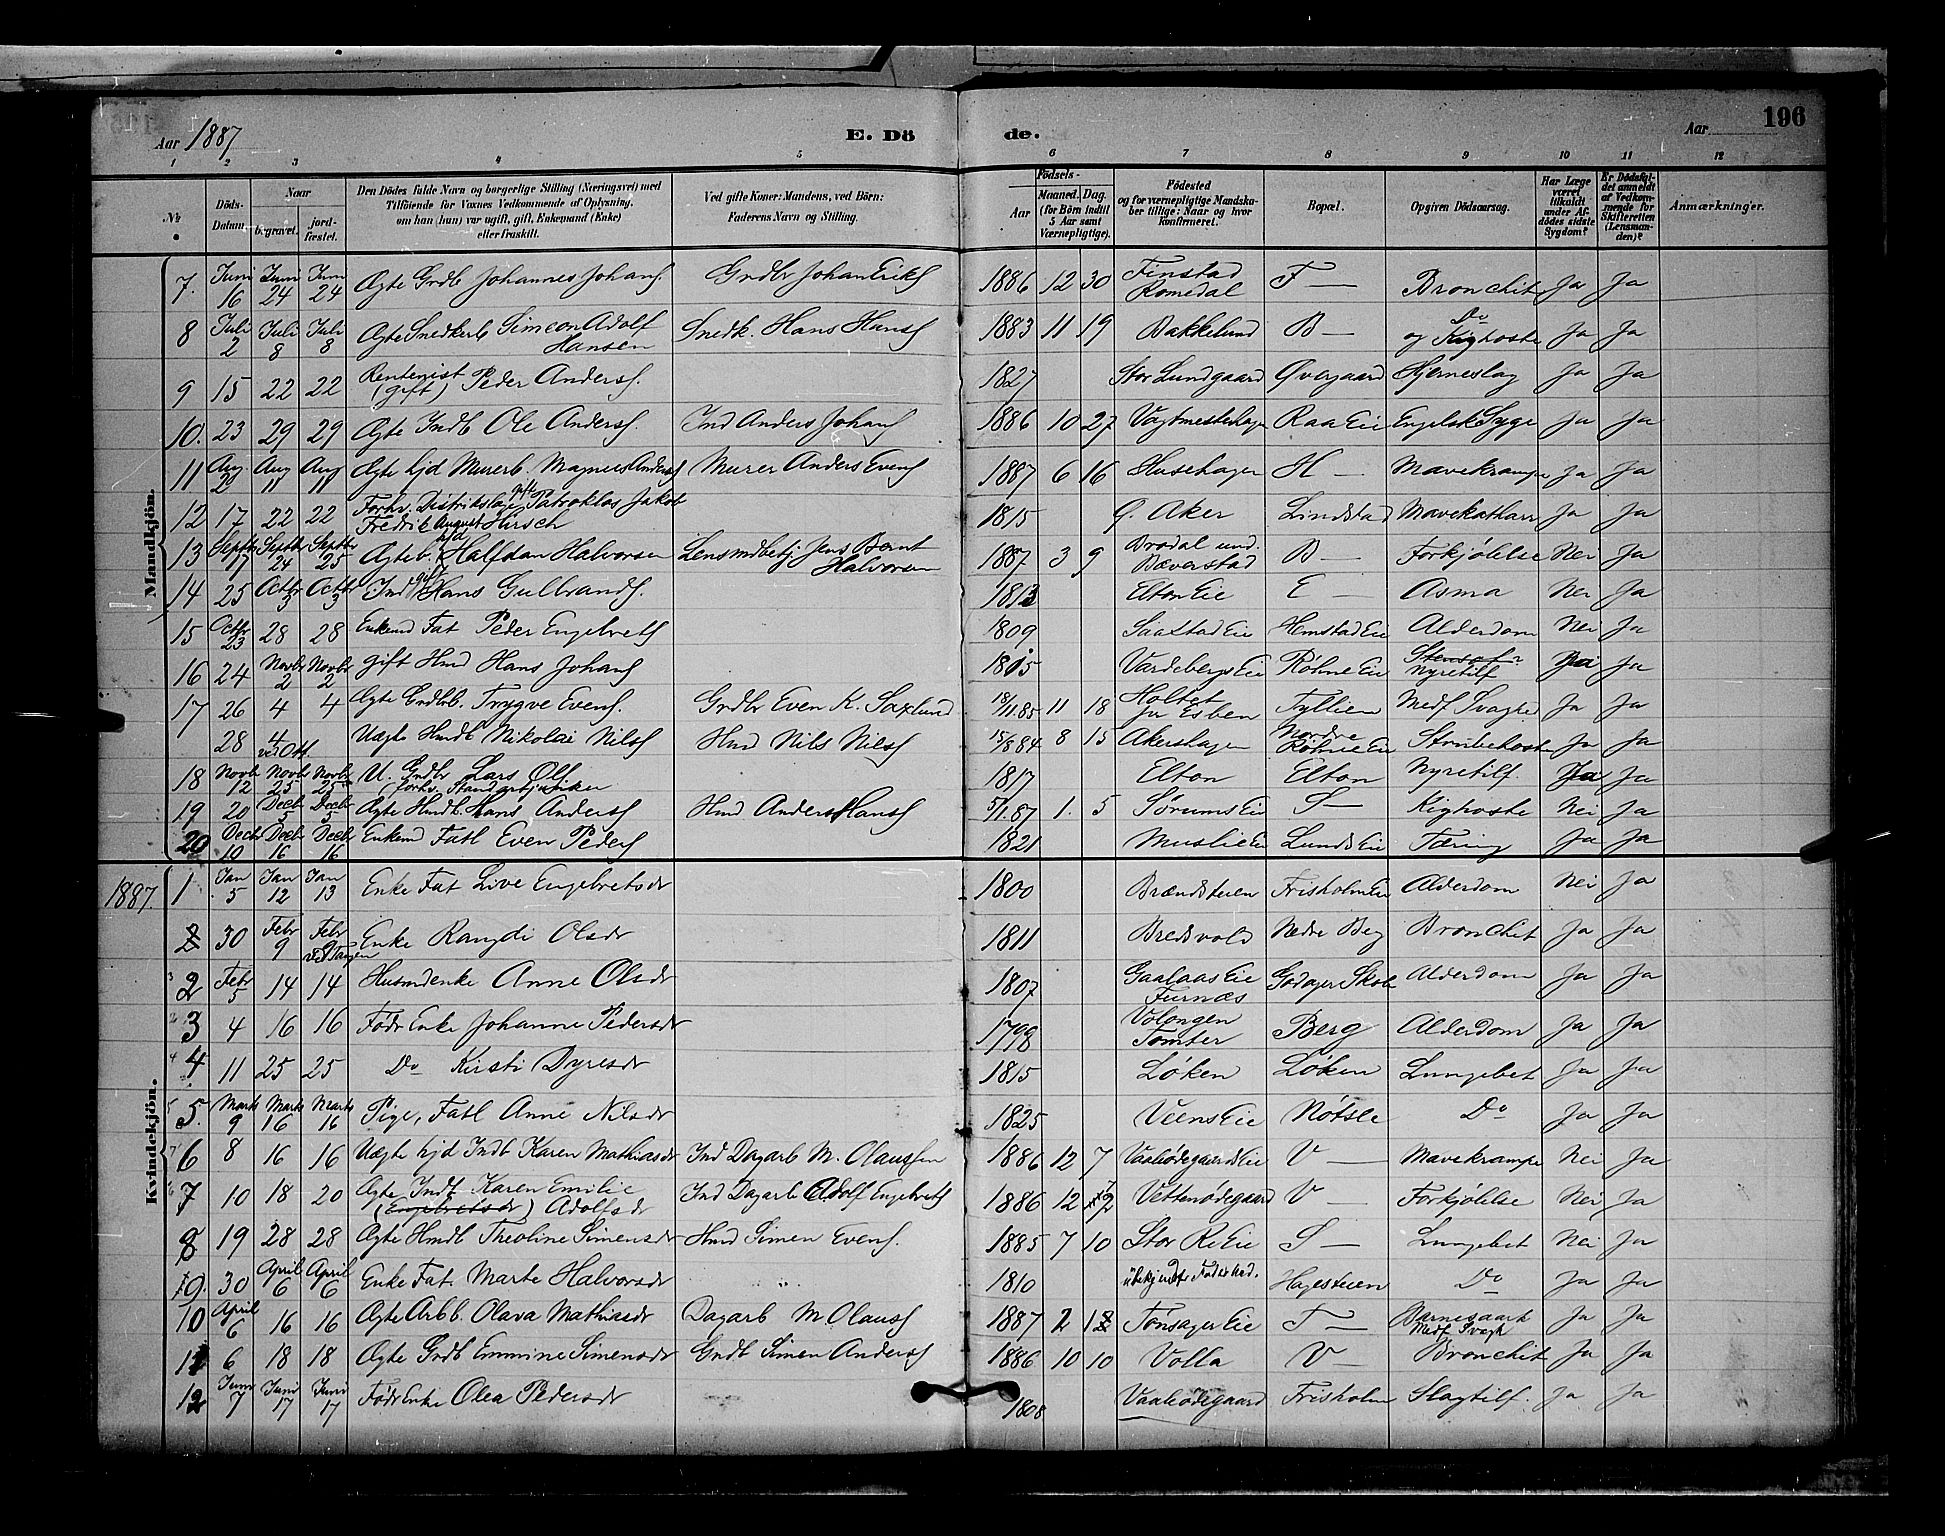 196
Aar 1887 E. Dö de. Aar
1 2 3 4 5 6 7 8 9 10 11 12
No. Döds-Datum. Naar begravet. jordfæstet. Den Dödes fulde Navn og borgerlige Stilling (Næringsvei) med Tilföiende for Voxnes Vedkommende af Oplysning, om han (hun) var ugift, gift, Enkemand (Enke) eller fraskilt. Ved gifte Koner: Mandens, ved Börn: Faderens Navn og Stilling. Födsels- Aar Maaned. Dag. (for Börn indtil 5 Aar samt Værnepligtige). Födested og for værnepligtige Mandskaber tillige: Naar og hvor konfirmeret. Bopæl. Opgiven Dödsaarsag. Har Læge været tilkaldt under Afdödes sidste Sygdom? Er Dödsfaldet anmeldt af Vedkommende for Skifteretten (Lensmanden)? Anmærkninger.
Mandkjön.
7. Juni 16 Juni 24 Juni 24 Ægte Grdb Johannes Johans. Grdbr Johan Eriks 1886 12 30 Finstad Romedal F — Bronchit Ja Ja
8 Juli 2 Juli 8 Juli 8 Ægte Snedkerb Simeon Adolf Hansen Snedk. Hans Hans 1883 11 19 Bakkelund B — Do og Kighoste Ja Ja
9 15 22 22 Rentenist (gift) Peder Anders. 1827 Stor Lundgaard Øvergaard Hjerneslag Ja Ja
10. 23 29 29 Ægte Indb Ole Anders. Ind Anders Johans 1886 10 27 Vagtmesterhagen Raa Eie Engelsk Syge Ja Ja
11 Aug 2 Aug 11 Aug 11 Ægte hjd Murerb. Magnus Anders Murer Anders Evens 1887 6 16 Husehagen H — Mavekrampe Ja Ja
12 17 22 22 Forhv. Distriktslæge gift Patroklos Jakob Fredrik August Hirsch 1815 Ø. Aker Lindstad Mavekatharr Ja Ja
13 Septbr 17 Septbr 24 Septbr 25 Ægte b. hjd Halfdan Halvorsen Lensmdbetj. Jens Bernt Halvorsen 1887 3 9 Brodal und. Bæverstad B — Forkjølelse Nei Ja
14 25 Octbr 3 Octbr 3 Ind gift Hans Gulbrands. 1813 Elton Eie E — Asma Nei Ja
15 Octbr 23 28 28 Enkemd Fat Peder Engebrets 1809 Saastad Eie Hemstad Eie Alderdom Nei Ja
16 24 Novbr 2 Novbr 2 gift Hmd Hans Johans 1815 Vardebergs Eie Røhne Eie Nyretilf Ja Ja
17 26 4 4 Ægte Grdbrb. Trygve Evens. Grdbr Even K. Saxlund 18/11.85 11 18 Holtet Tyllien Medf Svaghed Ja Ja
28 4 Uægte Hmdb Nikolai Nils Hmd Nils Nils 15/8 84 8 15 Akershagen Nordre Røhne Eie Strubehoste Ja Ja
18 Novbr 12 Novbr 25 Novbr 25 U. Grdbr Lars Ols 1817 Elton Elton Nyretilf. Ja Ja
19 20 Decbr 5 Decbr 5 Ægte Hmdb. Hans Anders Hmd Anders Hans 5/1.87 1. 5 Sørums Eie S — Kighoste Nei Ja
20 Decbr 10 Decbr 16 Decbr 16 Enkemd Fatl Even Peders 1821 Muslie Eie Lunds Eie Tæring Ja Ja
Kvindekjön.
1887. 1 Jan 5 Jan 12 Jan 13 Enke Fat Live Engebretsdr 1800 Brændsteien Frisholm Eie Alderdom Nei Ja
2 30 Febr 9 Febr 9 v. Tangen Enke Rangdi Olsdr 1811 Bredsvold Nedre Beg Bronchit Ja Ja
2 Febr 5 14 14 Husmdenke Anne Olsdr 1807 Gaalaas Eie Furnæs Godager Skole Alderdom Ja Ja
3 4 16 16 Fødr Enke Johanne Pedersdr 1798 Tomter Berg Alderdom Ja Ja
4 11 25 25 Do Kirsti Dyresdr 1815 Løken Løken Lungebet Ja Ja
5. Marts 9 Marts 16 Marts 16 Pige, Fatl Anne Nilsdr 1825 Veens Eie Nøtsle Do Ja Ja
6 8 16 16 Uægte hjd Indb Karen Mathiasdr Ind Dagarb M. Olaussen 1886 12 7 Vaaleødegaards Eie V — Mavekrampe Nei Ja
7 10 18 20 Ægte Indb Karen Emilie (Engebretsdr) Adolfsdr Ind Dagarb Adolf Engebrets 1886 12 Vettenødegaard V — Forkjølelse Nei Ja
8 19 28 28 Ægte Hmdb Theoline Simensdr Hmd Simen Evens. 1885 7 10 Stor Re Eie S — Lungebet Nei Ja
9. 30 April 6 April 6 Enke Fat. Marte Halvorsdr " 1810 ubekjendt Fødested. Hagesteien Do Ja Ja
10 April 6 16 16 Ægte Arbb. Olava Mathiasdr Dagarb M Olaus 1887 2 Tønsager Eie T — Medf Svagh Ja Ja
11 6 18 18 Ægte Grdb Emmine Simensdr Grdb Simen Anders 1886 10 10 Volla V — Bronchit Ja Ja
12 Juni 7 Juni 17 Juni 17 Fødr Enke Olea Pedersdr 1808 Vaaleødegaard Frisholm Slagtilf. Ja Ja